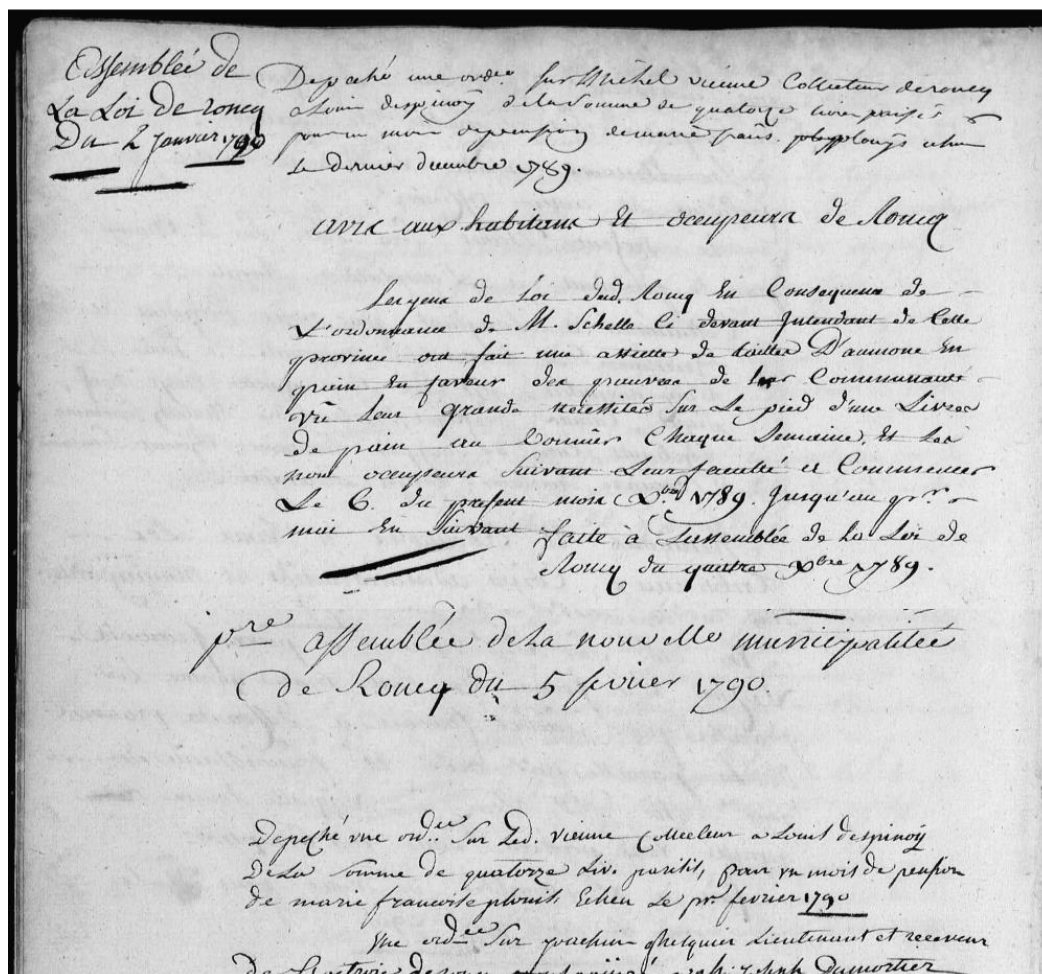 Assemblée de
La Loi de roncq
Du 2 Janvier 1790
Depeché une ord.ce sur Michel vienne Collecteur de roncq
a Louis despinoÿ de la somme de quatorze livre parisis
pour un mois de pension de marie
Le dernier decembre 1789.
avis aux habitans Et occupeurs de Roncq
Les gens de Loi dud. Roncq En Consequence de
L'ordonnance de M. Schelle ci devant Intendant de Cette
province ont fait une assiette de tailles D'aumone En
pain En faveur des pauvres de leur Communauté
vû leur grande necessités sur Le pied d'une Livres
de pain au bonnier Chaque Semaine, Et les
non occupeurs suivant Leur faculté et Commencer
Le 6. du present mois Xbre 1789. Jusqu'au pr.r
mai En suivant faite à Lassemblée de la Loi de
Roncq du quatre Xbre 1789.
pre assemblée de la nouvelle municipalitée
de Roncq du 5 fevrier 1790.
Depeché vne ord.ce sur Led. vienne Collecteur a Louis despinoÿ
De La somme de quatorze Liv. parisis, pour vn mois de pension
de marie francoise Echeu Le pr fevrier 1790
Vne ord.ce sur joachim Ghesquier Lieutenant et receveur
Joseph Dumortier